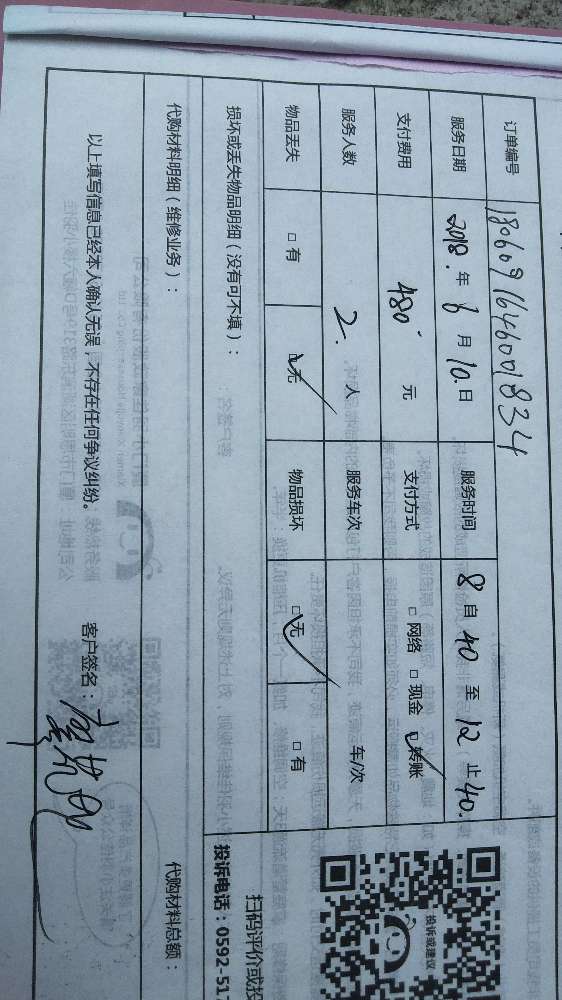 订单编号 18060916460001834
服务日期 2018.年 6 月 10.日 服务时间 8 自 40 至 12 止 40.
支付费用 480 元 支付方式 □ 网络 □ 现金 □ 转账
服务人数 2. 人 服务车次 车/次
物品丢失 □ 有 □ 无 物品损坏 □ 无 □ 有
损坏或丢失物品明细（没有可不填）：
代购材料明细（维修业务）： 代购材料总额：
以上填写信息已经本人确认无误，不存在任何争议纠纷。 客户签名：
投诉或建议
扫码评价或投
投诉电话：0592-517